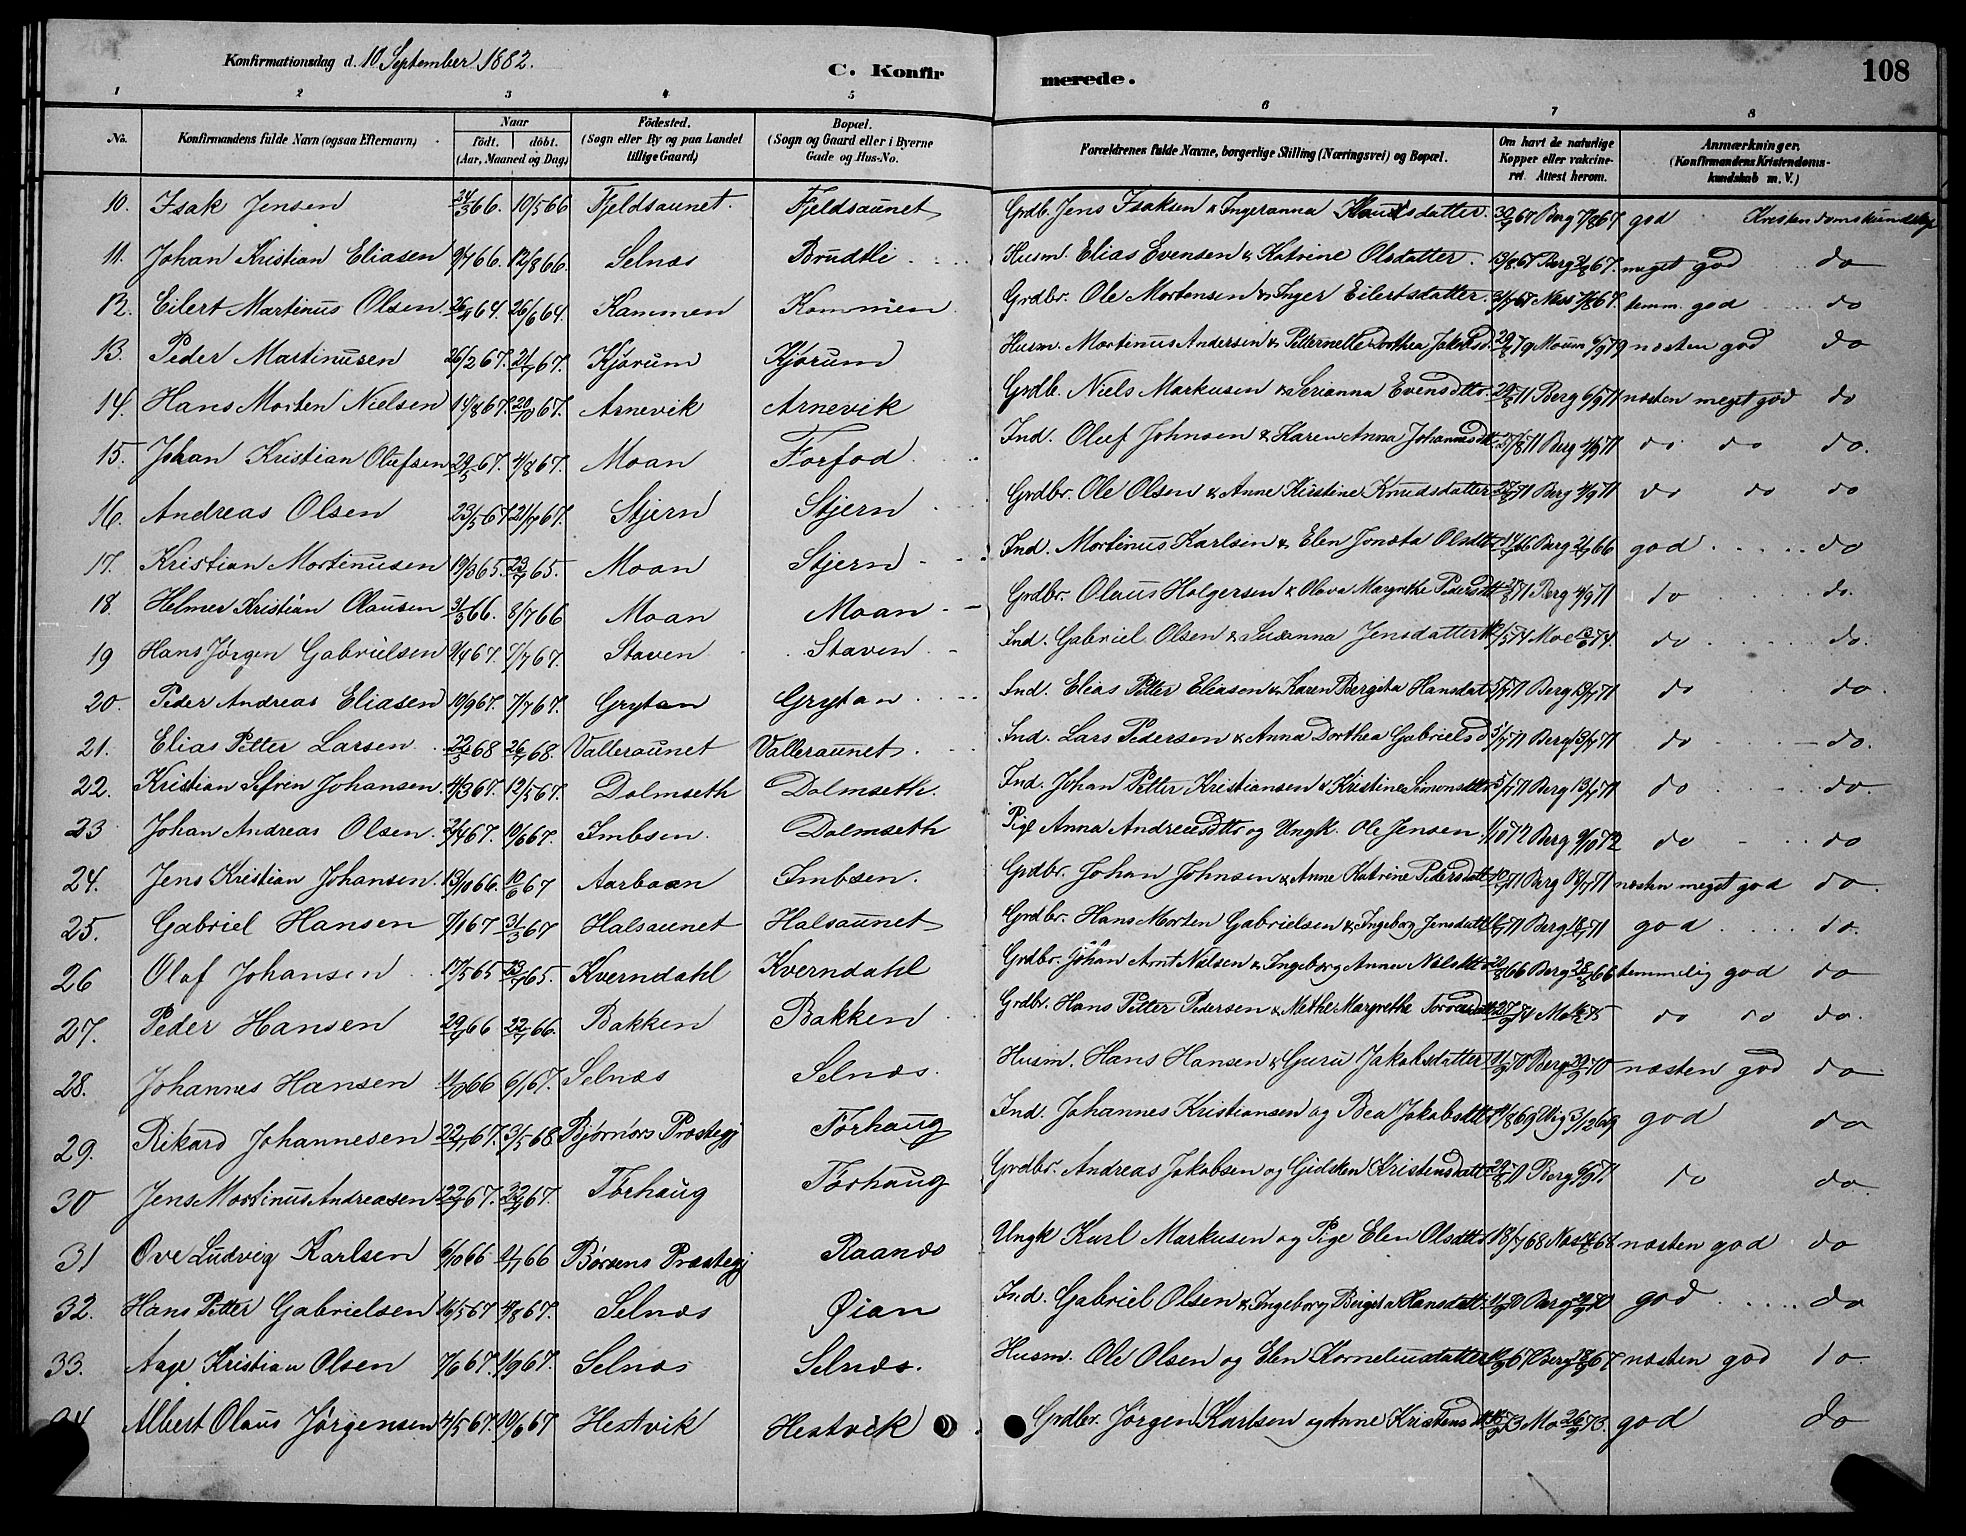 Konfirmationsdag d. 10 September 1882.
C. Konfirmerede.
108
1 2 3 4 5 6 7 8
No. Konfirmandens fulde Navn (ogsaa Efternavn) Naar födt. döbt. (Aar, Maaned og Dag) Födested. (Sogn eller By og paa Landet tillige Gaard) Bopæl. (Sogn og Gaard eller i Byerne Gade og Hus-No. Forældrenes fulde Navne, borgerlige Stilling (Næringsvei) og Bopæl. Om havt de naturlige Kopper eller vakcineret. Attest herom. Anmærkninger. (Konfirmandens Kristendomskundskab m. V.)
10. Isak Jensen 24/3 66. 10/5 66 Fjeldsaunet. Fjeldsaunet Grdb. Jens Isaksen & Ingeranna Knudsdatter. god Kristendomskundskap
11. Johan Kristian Eliasen 9/7 66. 12/8 66. Selnæs Brudtli Husm. Elias Evensen & Katrine Olsdatter. meget god do
12. Eilert Martinus Olsen 26/6 64. Kammen Kammen Grdbr. Ole Mortensen & Inger Eilertsdatter. temm. god do
13. Peder Martinusen 26/2 67. 21/7 67. Kjørum Kjørum Husm. Martinus Andersen & Petternelle Dorthea Jakobsd. næsten god do
14. Hans Morten Nielsen 14/8 67. 20/10 67. Arnevik Arnevik Grdb. Niels Markusen & Serianna Evensdtr. Berg 6/9 71 næsten meget god do
15. Johan Kristian Olufsen 29/5 67. 4/8 67. Moan Forfod Ind. Oluf Johnsen & Karen Anna Johannesdt. Berg 4/9 71 do do do.
16. Andreas Olsen 23/5 67 21/7 67. Stjern Stjern Grdbr. Ole Olsen & Anne Kirstine Knudsdatter Berg 4/9 71 do do do
17. Kristian Mortinusen 19/3 65. 23/7 65. Moan Stjern Ind. Mortinus Karlsen & Elen Joneta Olsdtr Berg god do
18. Helmer Kristian Olausen 3/3 66. 8/7 66 Moan Moan Grdbr. Olaus Holgersen & Olava Margrethe Pedersdtt Berg 4/9 71 do do.
19 Hans Jørgen Gabrielsen 9/4 67. 7/7 67. Staven Staven Ind. Gabriel Olsen & Susanna Jensdatter do do.
20. Peder Andreas Eliasen 7/7 67. Grytan Grytan Ind. Elias Petter Eliasen & Karen Bergita Hansdat 5/7 71 Berg 13/7 71 do do.
21. Elias Petter Larsen 22/3 68 68. Valleraunet Valleraunet. Ind. Lars Pedersen & Anna Dorthea Gabrielsd. 5/7 71 Berg 13/7 71 do do.
22. Kristian Sefrin Johansen. 4/3 67. 12/5 67. Dolmseth Dolmseth. Ind. Johan Petter Kristiansen & Kristine Simonsdtr 5/7 71 Berg 13/7 71 do do.
23 Johan Andreas Olsen. 10/6 67. Imbsen. Dolmseth Pige Anna Andreasdtr og Ungk. Ole Jensen. Berg 9/10 72 do do
24. Jens Kristian Johansen. 13/10 66. 10/6 67 Aarbaan Imbsen. Grdbr. Johan Johnsen & Anne Katrine Pedersdatt Berg næsten meget god do.
25. Gabriel Hansen 31/3 67 Halsaunet Halsaunet Grdbr. Hans Morten Gabrielsen & Ingeborg Jensdatt Berg god do.
26 Olaf Johansen 17/5 65 23/7 65. Kverndahl Kverndahl Grdbr. Johan Arnt Nilsen & Ingeborg Anna Nilsdttr Berg 28/8 66 temmelig god do
27. Peder Hansen 66 66. Bakken Bakken Grdbr. Hans Petter Pedersen & Methe Margrethe do do do.
28. Johannes Hansen 67. Selnæs Selnæs. Husm. Hans Hansen & Guru Jakobsdatter Berg næsten god do
29. Rikard Johannesen 67. 3/5 68 Bjørnørs Præstegj Forhaug Ind. Johannes Kristiansen og Bea Jakobsdtter 3/12 69 god do
30 Jens Mortinus Andreasen 67. 67. Forhaug Forhaug Grdbr. Andreas Jakobsen og Gidsken Kristensdatt Berg do do.
31 Ove Ludvig Karlsen 66 66 Børsens Præstegj Raanæs Ungk Karl Markusen og Pige Elen Olsdttr næsten god do
32. Hans Petter Gabrielsen 67 67. Selnæs Øian Ind. Gabriel Olsen & Ingeborg Bergita Hansdatt. Berg god do
33. Aage Kristian Olsen 7/6 67. 1/9 67. Selnæs Selnæs. Husm. Ole Olsen og Elen Korneliusdatter Berg næsten god do.
Albert Olaus Jørgensen 4/5 67. 10/6 67 Hestvik Hestvik Grdbr. Jørgen Karlsen og Anne Kristensd. god do